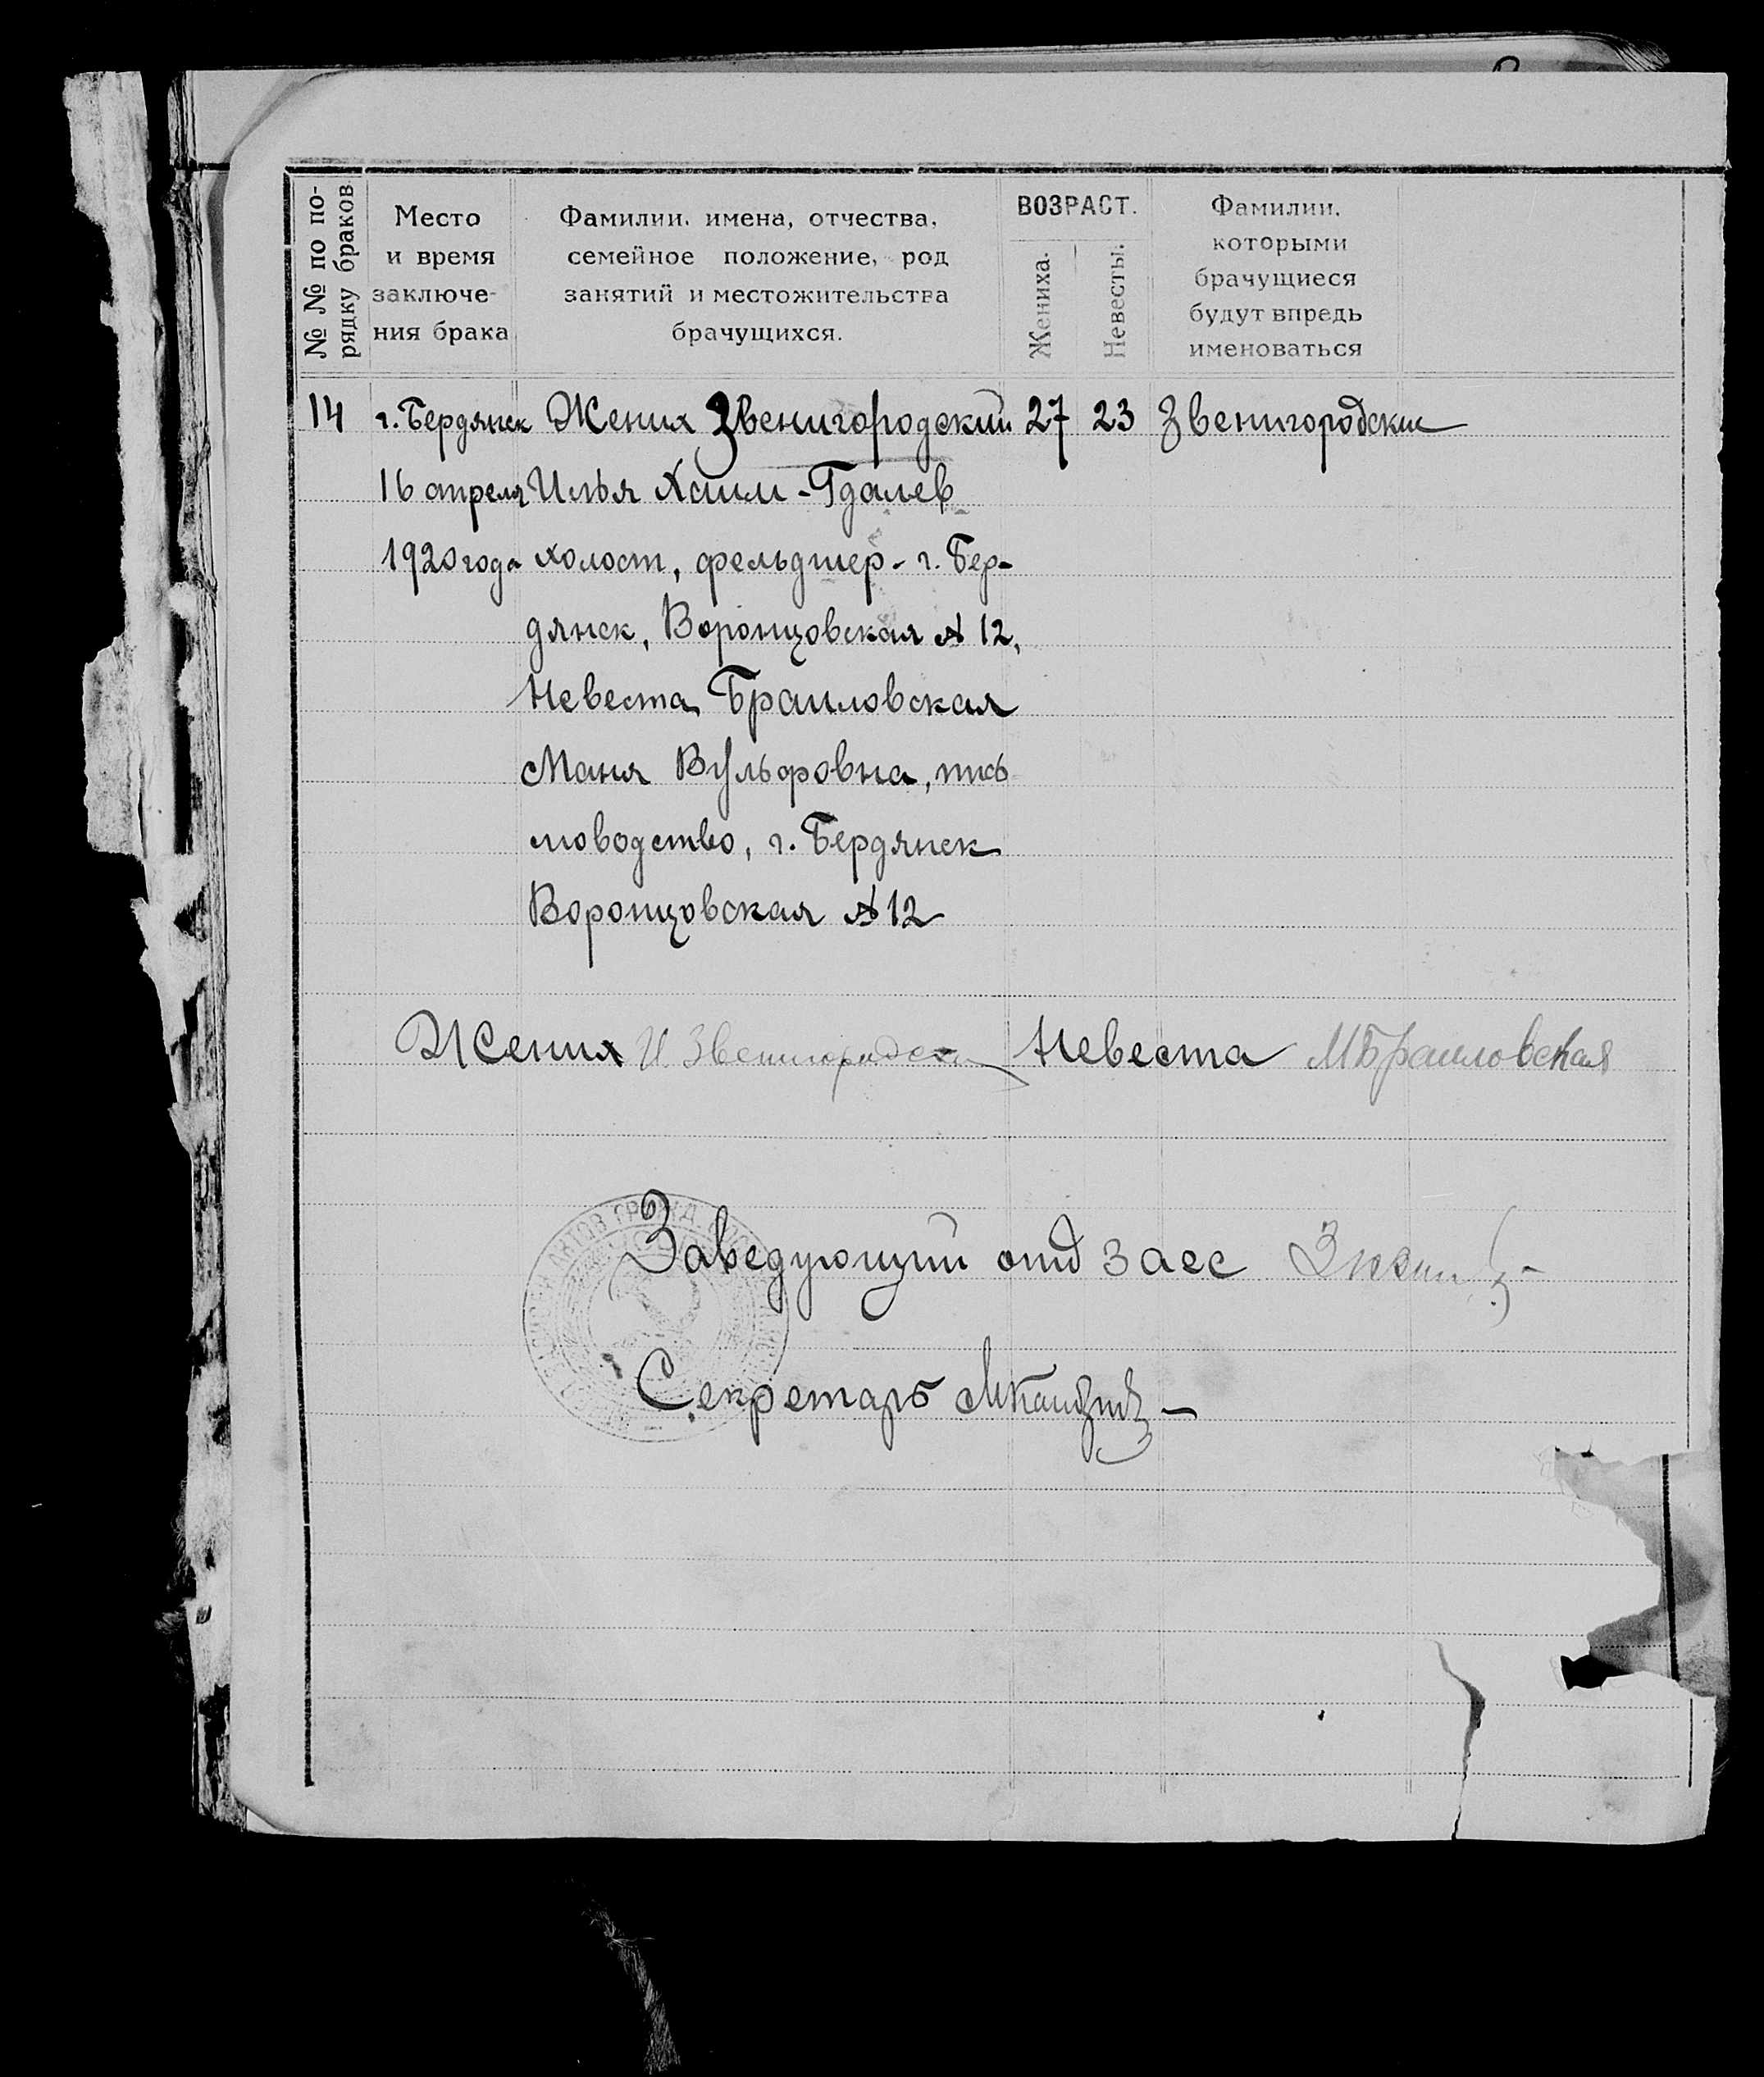 № № по по-
рядку браков
Место
и время
заключе-
ния брака
Фамилии, имена, отчества,
семейное положение, род
занятий и местожительства
брачущихся.
ВОЗРАСТ.
Жениха.
Невесты.
Фамилии,
которыми
брачущиеся
будут впредь
именоваться
14 г. Бердянск Жених Звенигородский 27 23 Звенигородские
16 апреля Илья Хаим-Гдалев
1920 года холост, фельдшер - г. Бер-
дянск, Воронцовская № 12,
Невеста Браиловская
Маня Вульфовна, пись
моводство, г. Бердянск
Воронцовская № 12
Жених И. Звенигородский Невеста М Браиловская
Заведующий отд загс
Секретарь